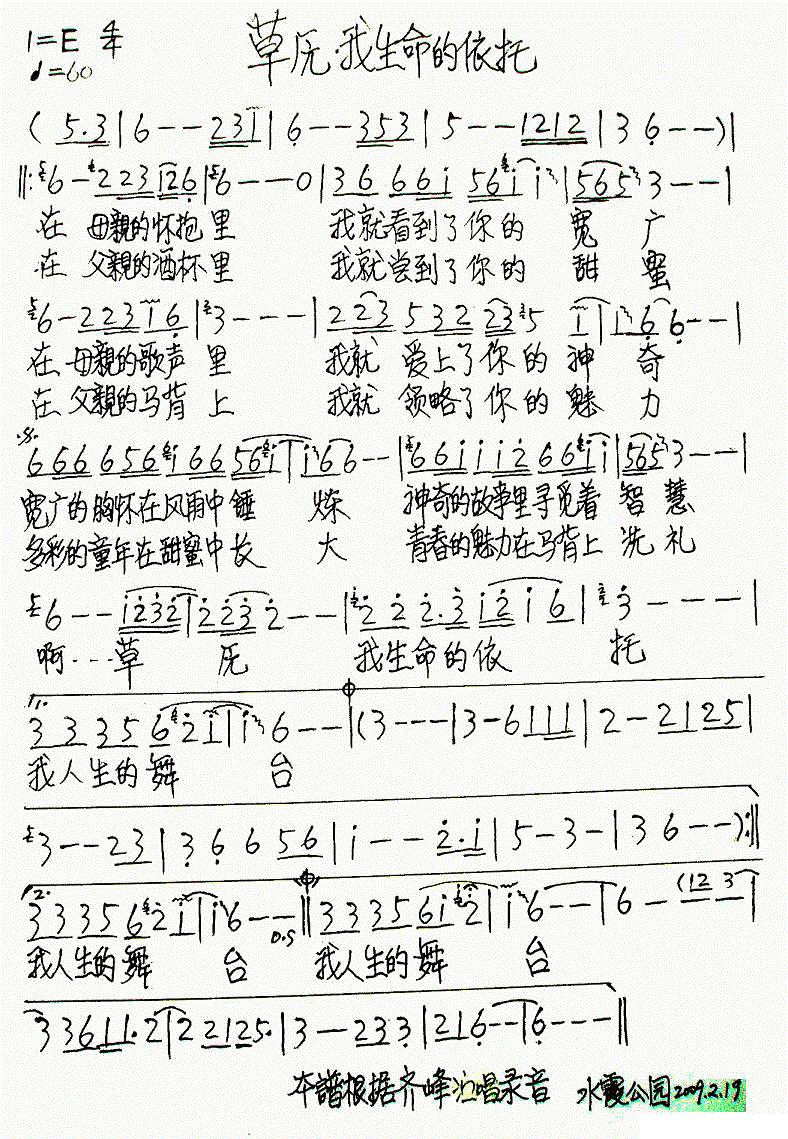 1=E 4/4
♩=60
草原·我生命的依托
( 5.3 | 6 - - 231 | 6 - - 353 | 5 - - 1212 | 3 6 - - ) |
||: 6 - 223 126 | 6 - - - 0 | 36 661 56 1 1 | 565 3 - - |
在 母亲的怀抱里 我就看到了你的 宽 广
在 父亲的酒杯里 我就尝到了你的 甜 蜜
6 - 223 1 6 | 3 - - - | 2 23 532 23 5 1 | 1 6 6 - - |
在 母亲的歌声 里 我就 爱上了你的 神 奇
在 父亲的马背 上 我就 领略了你的 魅 力
6 66 656 1 66 56 1 | 1 6 6 - - | 661 112 66 1 1 | 565 3 - - |
宽广的胸怀在风雨中锤 炼 神奇的故事里寻觅着 智慧
多彩的童年在甜蜜中长 大 青春的魅力在马背上 洗礼
6 - - 1232 | 2 23 2 - - | 2 2 2.3 12 1 6 | 3 - - - |
啊···草 原 我生命的依 托
1.
3 3 35 6 2 1 | 1 6 - - | (3 - - - | 3 - 6 111 | 2 - 2125 |
我人生的舞 台
3 - - 23 | 3 6 6 56 | 1 - - 2.1 | 5 - 3 - | 3 6 - - ) :||
2.
3 3 35 6 2 1 | 1 6 - - || 3 3 35 61 2 | 1 6 - - | 6 - (12 3 |
D.S
我人生的舞 台 我人生的舞 台
3 3611.2 | 2 2125. | 3 - - 233 | 216 - - | 6 - - - ||
本谱根据齐峰演唱录音 水霞公园2009.2.19